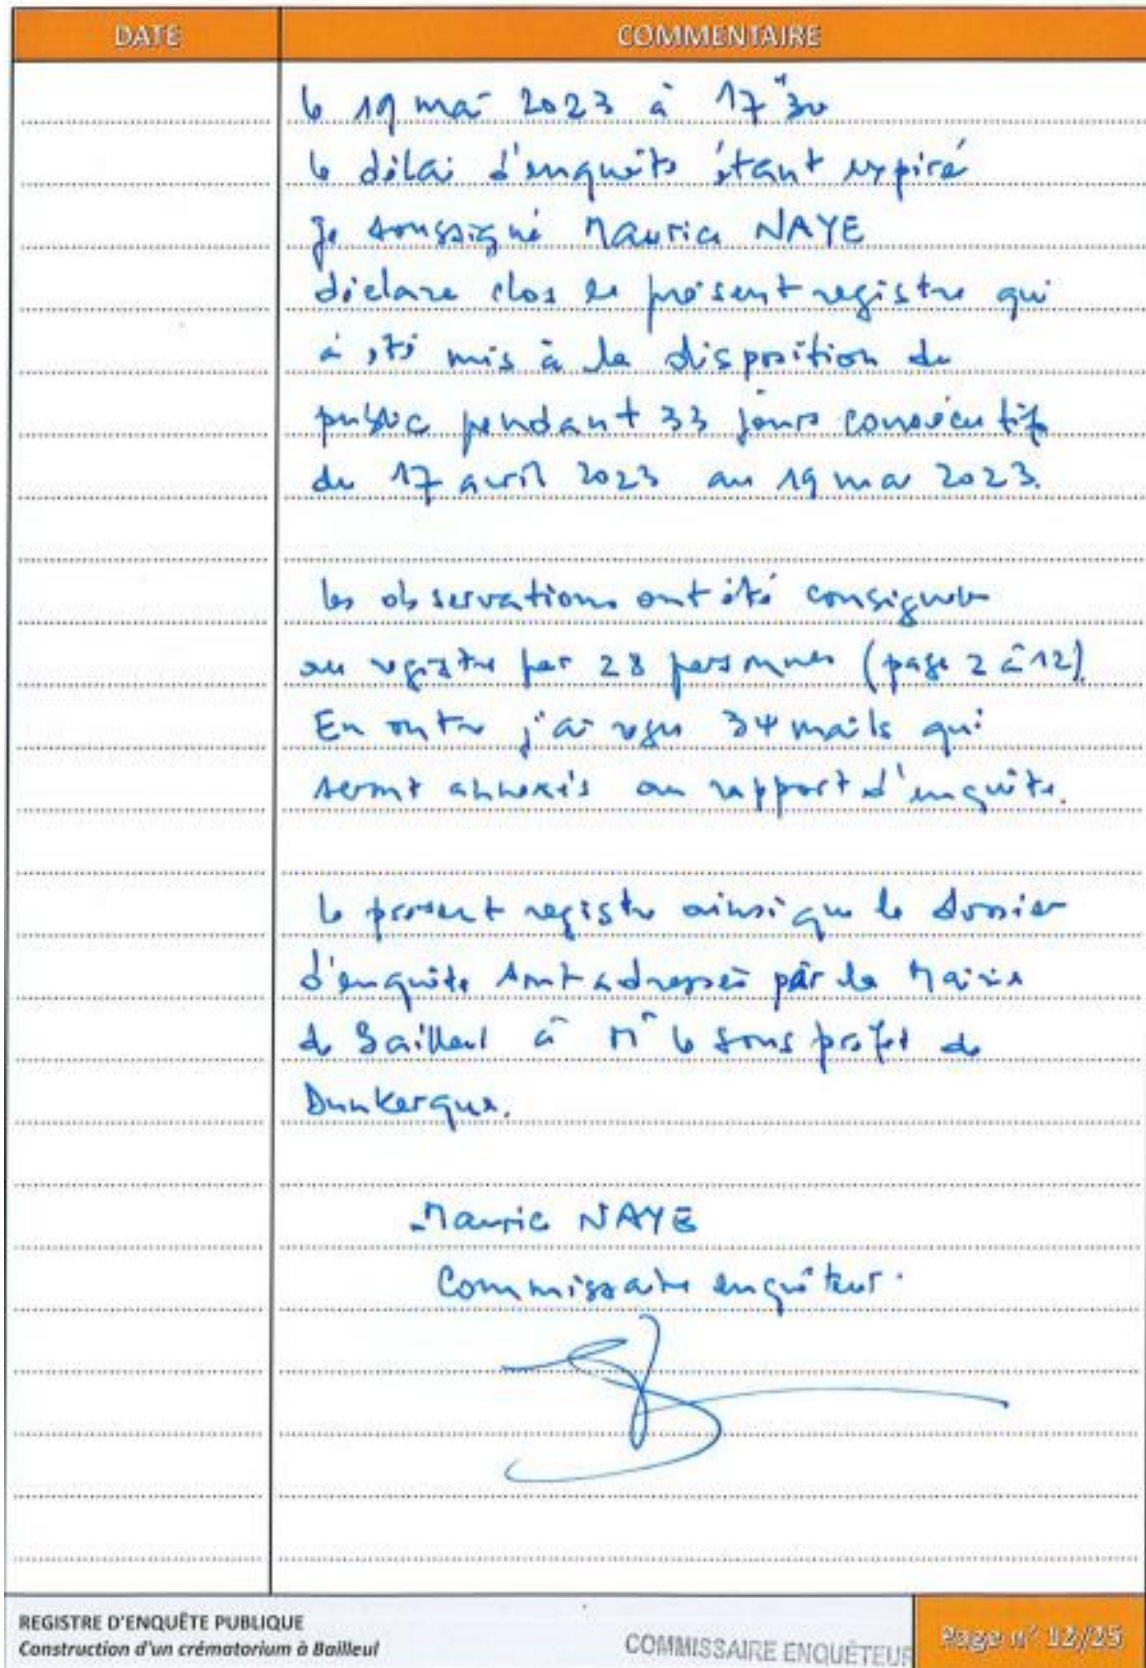 DATE COMMENTAIRE
le 19 mai 2023 à 17h30
le délai d'enquête étant expiré
Je soussigné Maurice NAYE
déclare clos le présent registre qui
à été mis à la disposition du
public pendant 33 jours consécutifs
du 17 avril 2023 au 19 mai 2023.
les observations ont été consignées
au registre par 28 personnes (page 2 à 12).
En outre j'ai reçu 34 mails qui
seront annexés au rapport d'enquête.
le présent registre ainsi que le dossier
d'enquête sont adressés par la Mairie
de Bailleul à Mr le sous préfet de
Dunkerque.
Maurice NAYE
Commissaire enquêteur.
REGISTRE D'ENQUÊTE PUBLIQUE
Construction d'un crématorium à Bailleul
COMMISSAIRE ENQUÊTEUR
Page n° 12/25